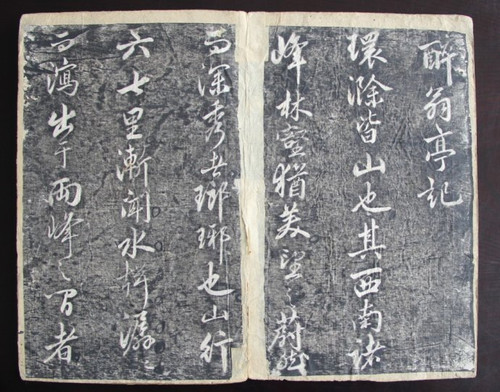 醉翁亭記
環滁皆山也其西南諸
峰林壑猶美望之蔚然
而深秀者瑯琊也山行
六七里漸聞水聲潺々
而瀉出于兩峰之間者